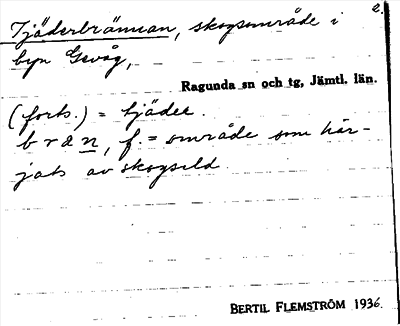 2.
Tjäderbrännan, skogsområde i
byn Gevåg,
Ragunda sn och tg, Jämtl. län.
(forts.) = tjäder.
b r a n, f. = område som här-
jats av skogseld.
BERTIL FLEMSTRÖM 1936.